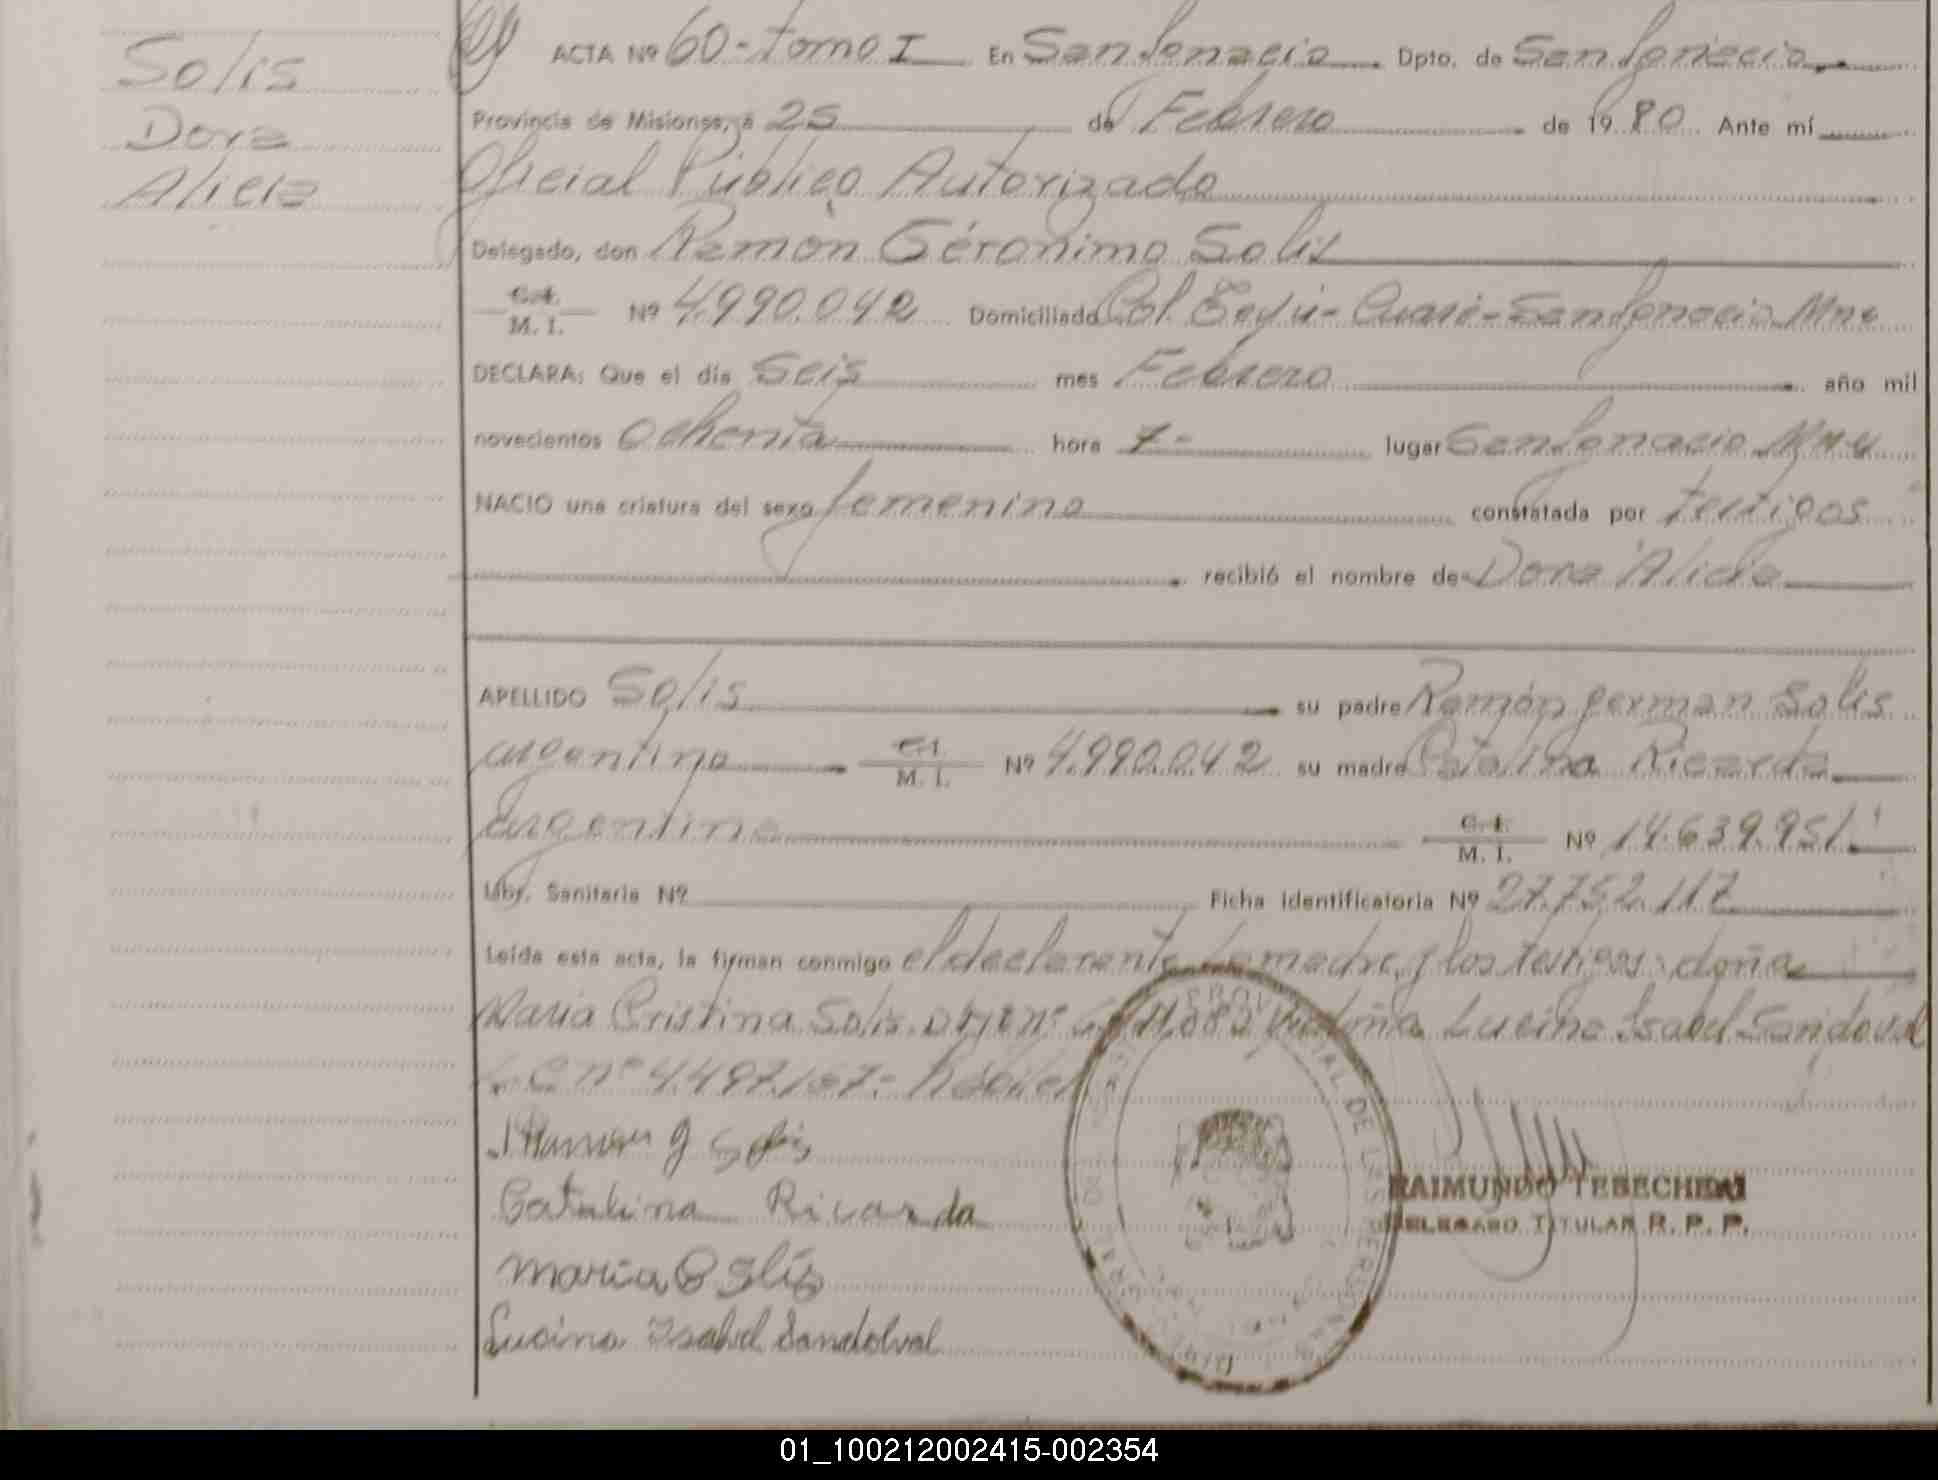 Solis
Dora
Alicia
ACTA Nº 60 - tomo I En San Ignacio Dpto. de San Ignacio
Provincia de Misiones, a 25 de Febrero de 1980 Ante mí
Oficial Público Autorizado
Delegado, don Ramón Gerónimo Solis
C.I. M. I. Nº 4.990.042 Domiciliado Col. Teyú-Cuaré-San Ignacio Mnes
DECLARA: Que el día Seis mes Febrero año mil
novecientos Ochenta hora 7- lugar San Ignacio Mnes
NACIO una criatura del sexo femenino constatada por testigos
recibió el nombre de Dora Alicia
APELLIDO Solis su padre Ramón german Solis
argentino C.I. M. I. Nº 4.990.042 su madre Catalina Ricarda
argentina C.I. M. I. Nº 14.639.951.
Libr. Sanitaria Nº Ficha identificatoria Nº 27.752.117
Leída esta acta, la firman conmigo el declarante, la madre y los testigos: doña
Maria Cristina Solis doña Lucina Isabel Sandoval
L.C nº 4.497.167.- hábiles
Solis
Catalina Ricarda
Maria C Solis
Lucina Isabel Sandoval
PROVINCIAL DE LAS PERSONAS
RAIMUNDO TEBECHERI
DELEGADO TITULAR R. P. P.
01_100212002415-002354